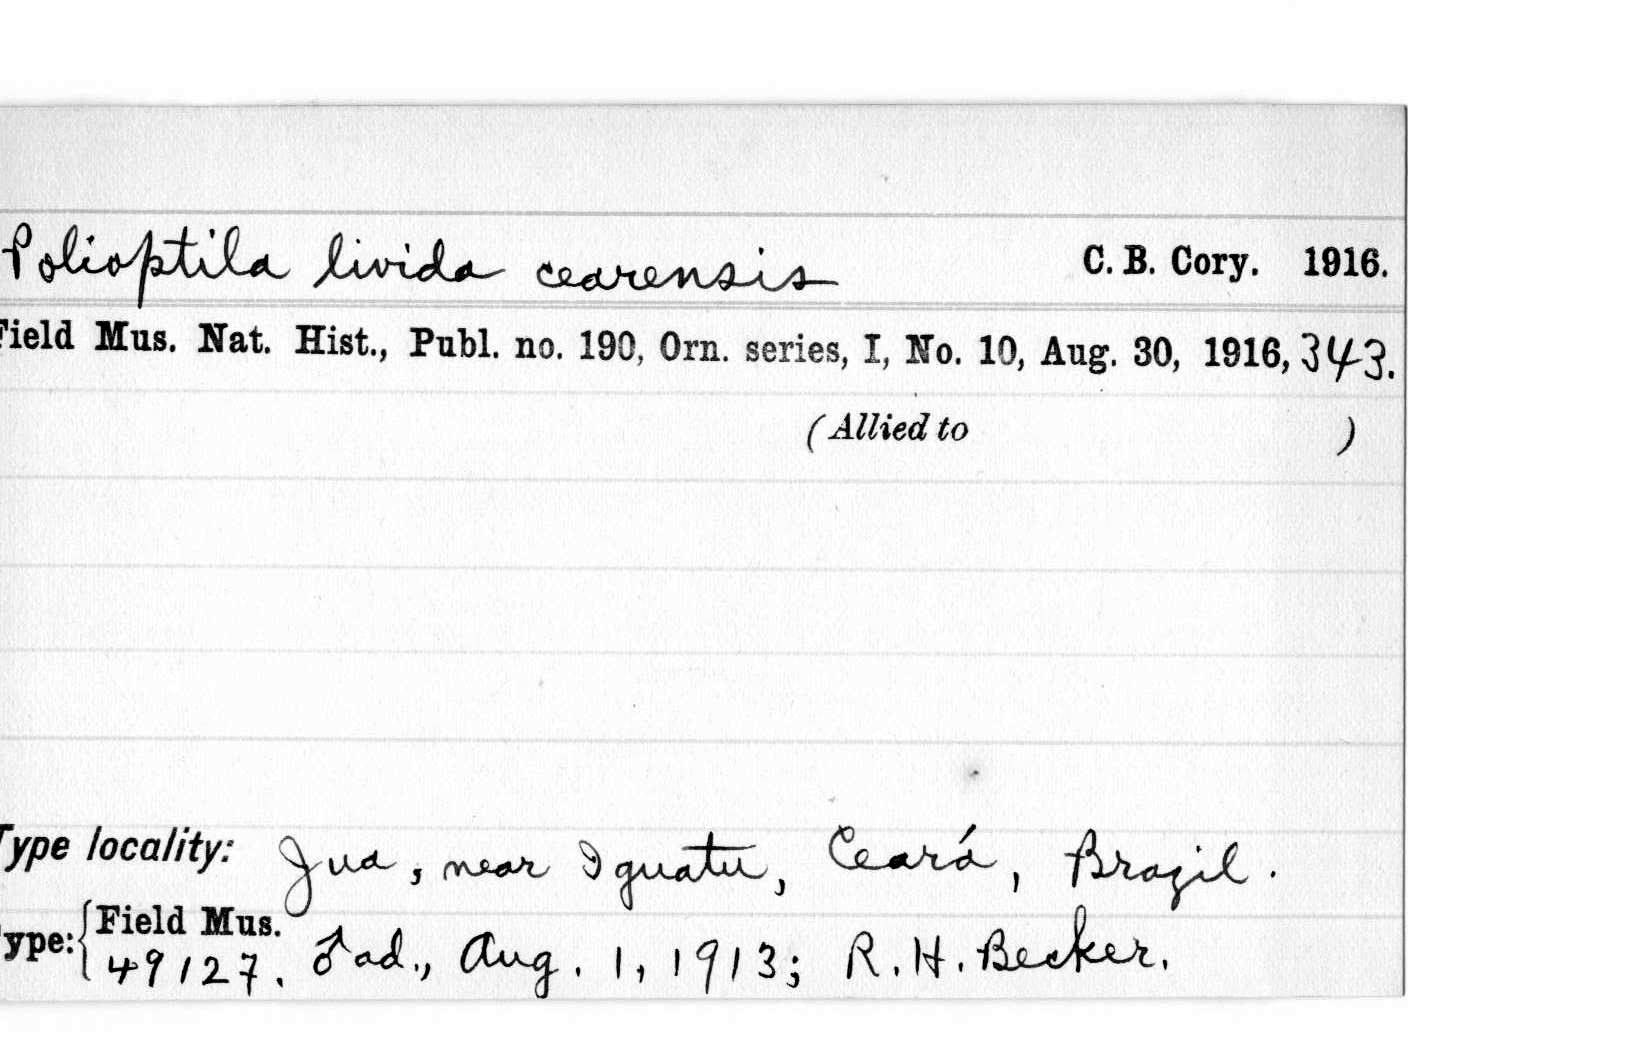 Polioptila livida cearensis C. B. Cory. 1916.
Field Mus. Nat. Hist., Publ. no. 190, Orn. series, I, No. 10, Aug. 30, 1916, 343.
(Allied to )
Type locality: Jua, near Iguatu, Ceará, Brazil.
Type: { Field Mus.
49127. ♂ ad., Aug. 1, 1913; R. H. Becker.